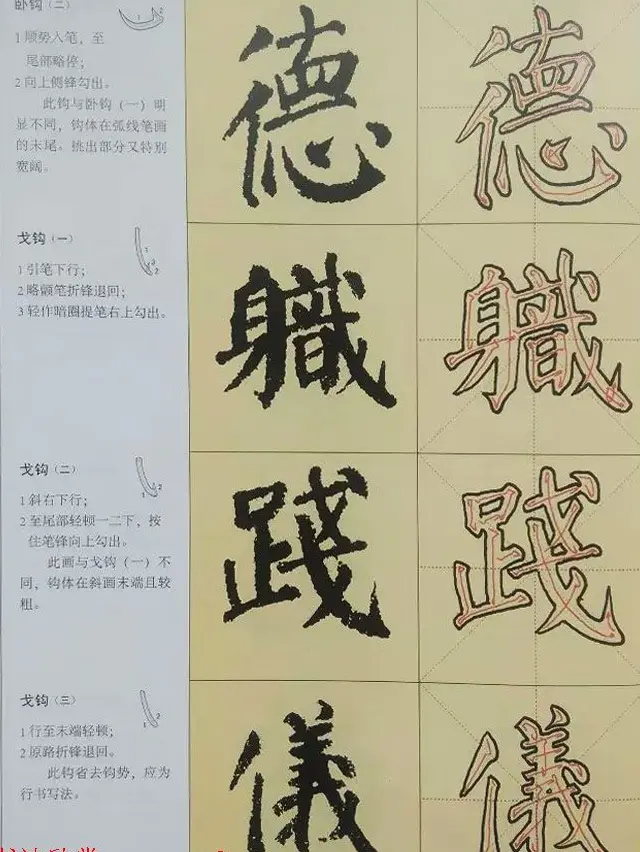 卧钩（二）
1 顺势入笔，至
尾部略停；
2 向上侧锋勾出。
此钩与卧钩（一）明
显不同，钩体在弧线笔画
的末尾。挑出部分又特别
宽阔。
德
戈钩（一）
1 引笔下行；
2 略顿笔折锋退回；
3 轻作暗圈提笔右上勾出。
軄
戈钩（二）
1 斜右下行；
2 至尾部轻顿一二下，按
住笔锋向上勾出。
此画与戈钩（一）不
同，钩体在斜画末端且较
粗。
踐
戈钩（三）
1 行至末端轻顿；
2 原路折锋退回。
此钩省去钩势，应为
行书写法。
儀